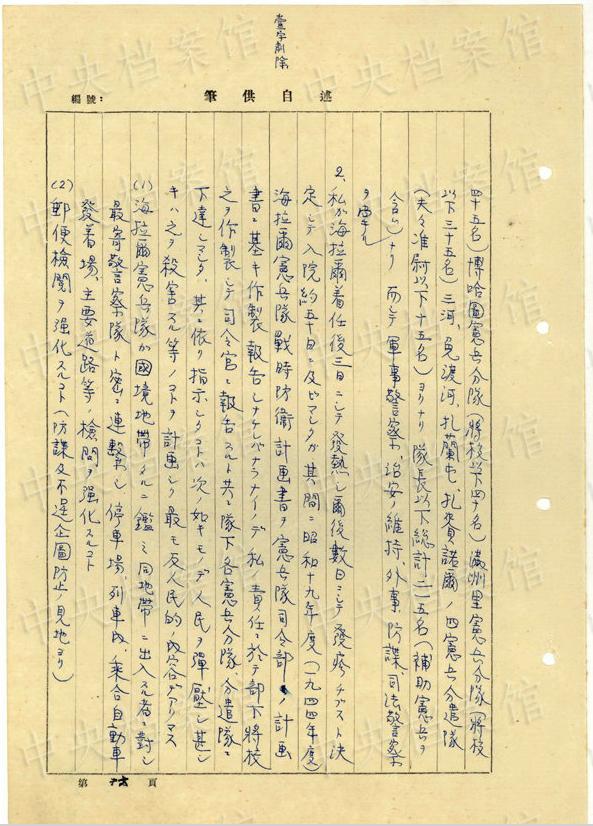 壹字削除
述自供筆
編號：
四十五名）博哈圖憲兵分隊（將校以下四十名）滿州里憲兵分隊（將校
以下三十五名）三河、免渡河、扎蘭屯、扎賚諾爾ノ四憲兵分遣隊
（夫々准尉以下十五名）ヨリナリ隊長以下総計二一五名（補助憲兵ヲ
含ム）ナリ而シテ軍事警察、治安ノ維持、外事、防諜、司法警察等
ヲ掌ル
2、私ガ海拉爾着任後三日ニシテ發熱シ爾後數日ニシテ發疹チブスト決
定シテ入院約五十日ニ及ビマシタガ其ノ間ニ昭和十九年度（一九四四年度）
海拉爾憲兵隊戰時防衛計画書ヲ憲兵隊司令部ノ計画
書ニ基キ作製報告シナケレバナラナイノデ私ノ責任ニ於テ部下將校
之ヲ作製シテ司令官ニ報告スルト共ニ隊下各憲兵分隊、分遣隊ニ
下達シマシタ、其ニ依リ指示シタコトハ次ノ如キモノデ人民ヲ彈壓シ甚シ
キハ之ヲ殺害スル等ノコトヲ計画シタ最モ反人民的ノ内容デアリマス
(1)海拉爾憲兵隊ガ國境地帶タルニ鑑ミ同地帶ニ出入スル者ニ對シ
最寄警察隊ト密ニ連繫シ停車場、列車内、乘合自動車
發着場、主要道路等ノ檢問ヲ強化スルコト
(2)郵便檢閲ヲ強化スルコト（防諜及不逞企圖防止ノ見地ヨリ）
第 頁
中央档案馆